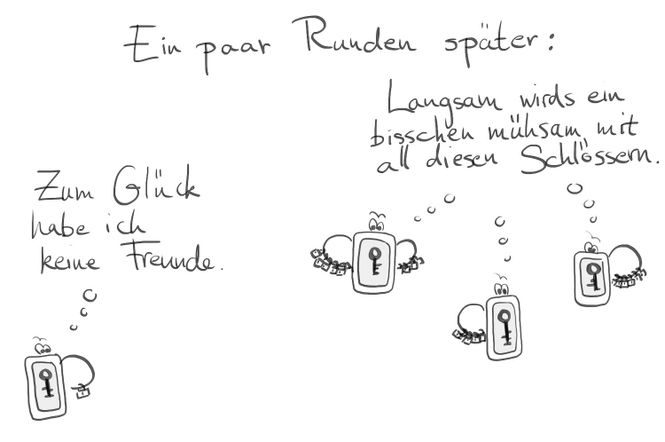 Ein paar Runden später:
Langsam wirds ein
bisschen mühsam mit
all diesen Schlössern.
Zum Glück
habe ich
keine Freunde.